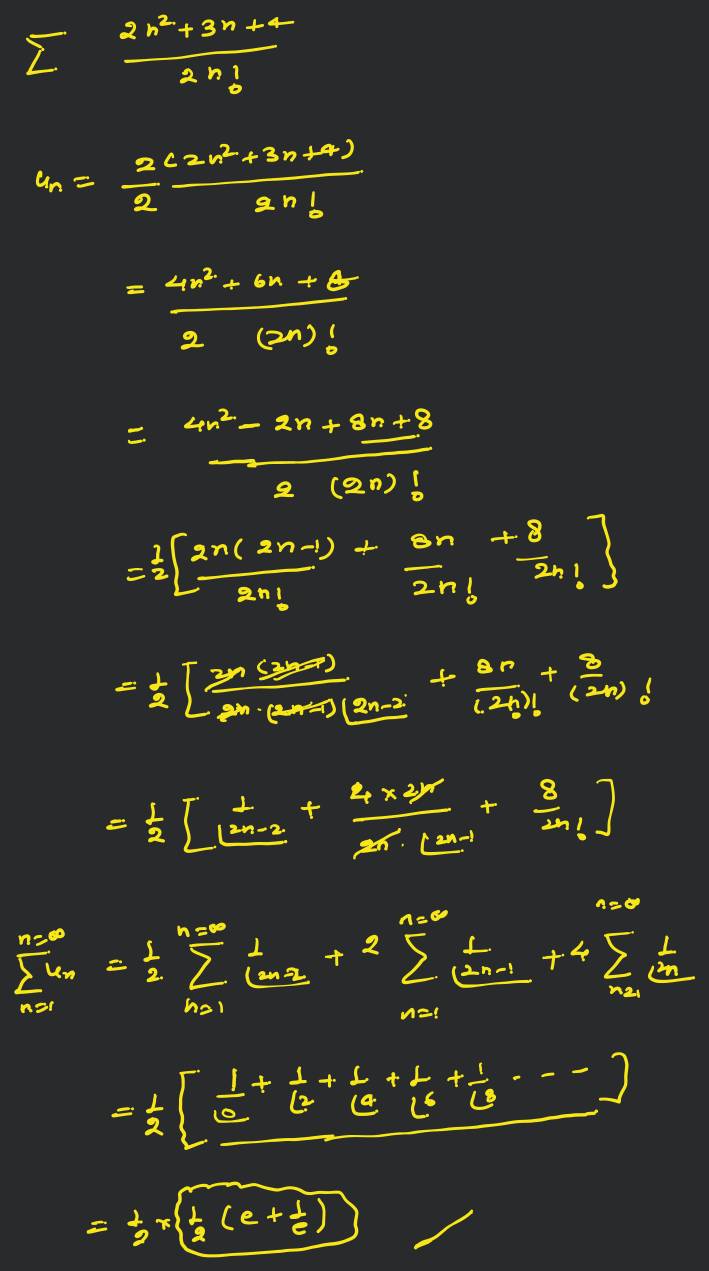 Σ (2n² + 3n + 4) / 2n!
uₙ = 2(2n² + 3n + 4) / 2 2n!
= (4n² + 6n + 8) / 2 (2n)!
= (4n² - 2n + 8n + 8) / 2 (2n)!
= 1/2 [ 2n(2n-1) / 2n! + 8n / 2n! + 8 / 2n! ]
= 1/2 [ 2n(2n-1) / 2n·(2n-1) |2n-2 + 8n / (2n)! + 8 / (2n)!
= 1/2 [ 1 / |2n-2 + 4×2n / 2n·|2n-1 + 8 / 2n! ]
n=∞ Σ n=1 uₙ = 1/2 n=∞ Σ n=1 1 / |2n-2 + 2 n=∞ Σ n=1 1 / |2n-1 + 4 n=∞ Σ n=1 1 / |2n
= 1/2 [ 1/|0 + 1/|2 + 1/|4 + 1/|6 + 1/|8 - - - ]
= 1/2 × { 1/2 (e + 1/e) }